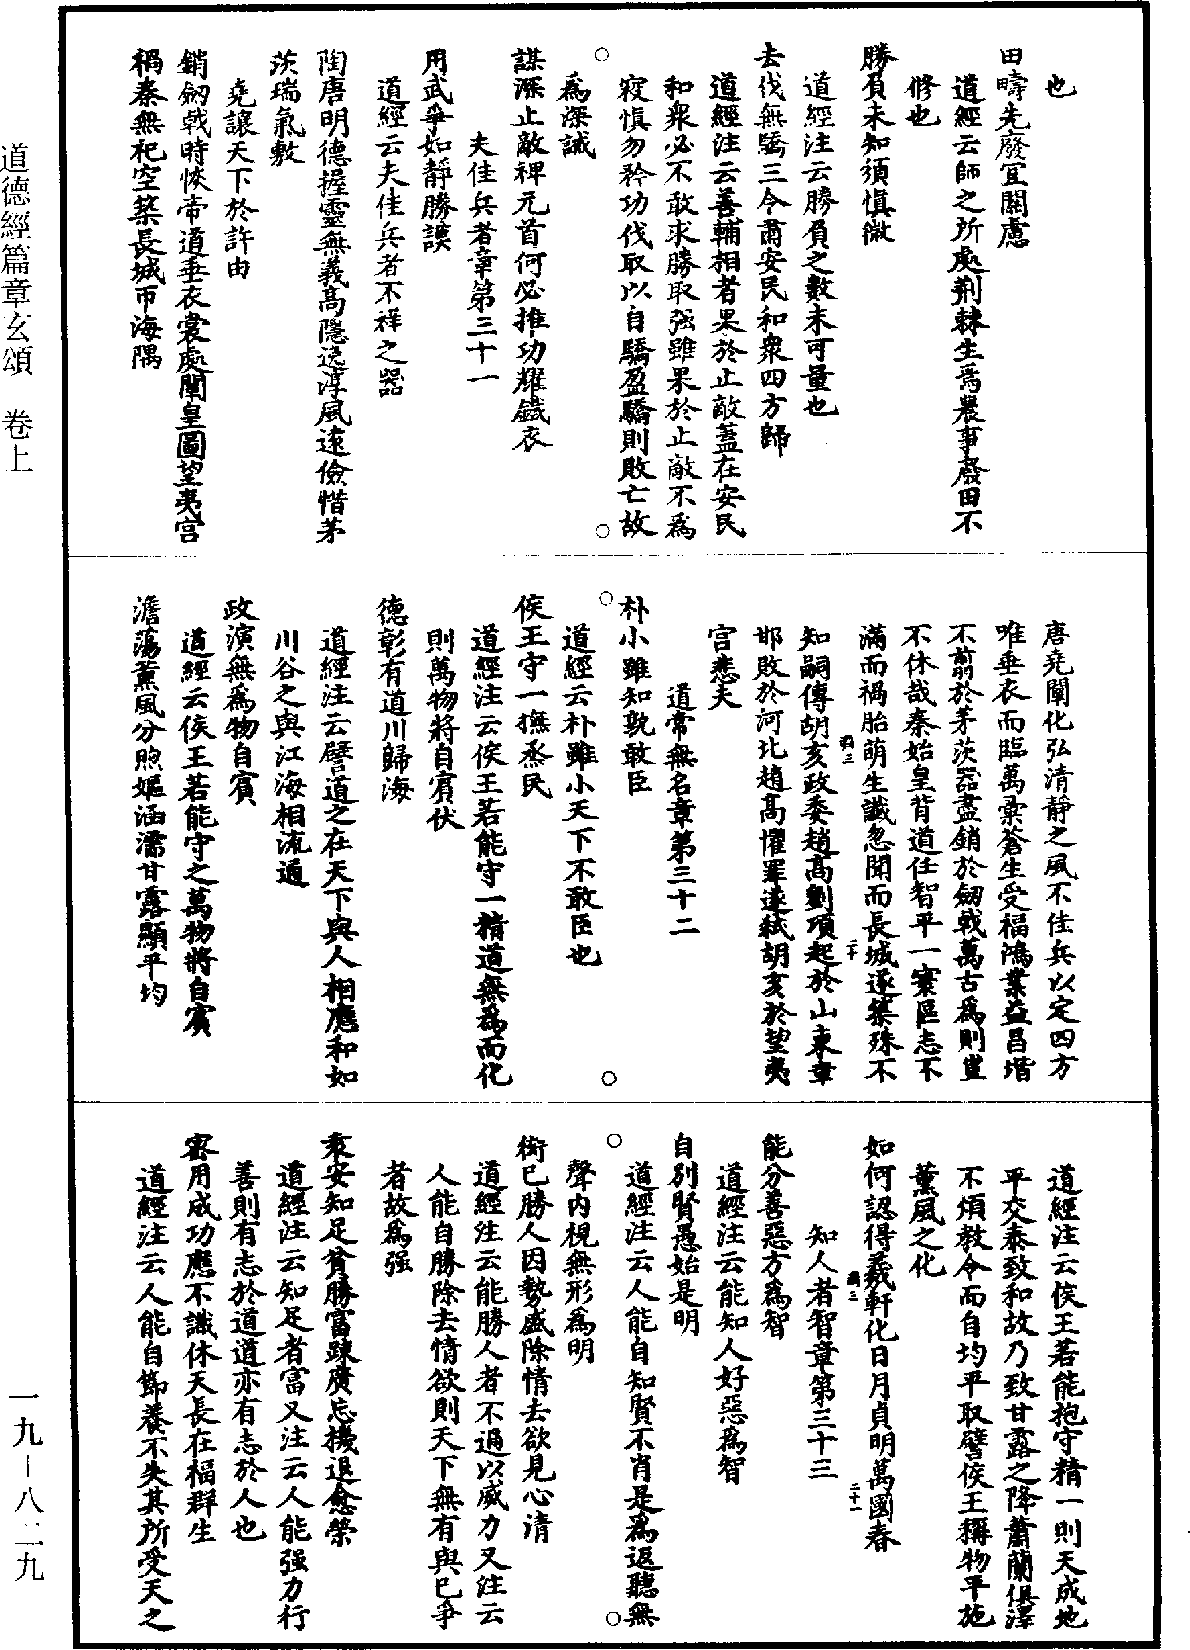 也
田疇先廢宜關慮
道經云師之所處荆棘生焉農事廢田不
修也
勝負未知須慎微
道經注云勝負之數未可量也
去伐無驕三令肅安民和衆四方歸
道經注云善輔相者果於止敵蓋在安民
和衆必不敢求勝取强雖果於止敵不爲
寇慎勿矜功伐取以自驕盈驕則敗亡故
爲深誡
謀深止敵裨元首何必推功耀鐵衣
夫佳兵者章第三十一
用武爭如靜勝謨
道經云夫佳兵者不祥之器
陶唐明德握靈無義高隱逸淳風遠儉惜茅
茨瑞氣敷
堯讓天下於許由
銷劒戟時恢帝道垂衣裳處闡皇圖望夷宮
禍秦無祀空築長城帀海隅
唐堯闡化弘清靜之風不佳兵以定四方
唯垂衣而臨萬彙蒼生受福鴻業益昌堦
不翦於茅茨器盡銷於劒戟萬古爲則豈
不休哉秦始皇背道任智平一寰區志不
滿而禍胎萌生讖忽聞而長城遂築殊不
知嗣傳胡亥政委趙高劉項起於山東章
邯敗於河北趙高懼罪遂弒胡亥於望夷
宮悲夫
道常無名章第三十二
朴小雖知孰敢臣
道經云朴雖小天下不敢臣也
侯王守一撫烝民
道經注云侯王若能守一精道無爲而化
則萬物將自賓伏
德彰有道川歸海
道經注云譬道之在天下與人相應和如
川谷之與江海相流通
政演無爲物自賓
道經云侯王若能守之萬物將自賓
澹蕩薰風分煦嫗涵濡甘露顯平均
道經注云侯王若能抱守精一則天成地
平交泰致和故乃致甘露之降蕭蘭俱澤
不煩教令而自均平取譬侯王稱物平施
薰風之化
如何認得羲軒化日月貞明萬國春
知人者智章第三十三
能分善惡方爲智
道經注云能知人好惡爲智
自別賢愚始是明
道經注云人能自知賢不肖是爲返聽無
聲內視無形爲明
衒已勝人因勢盛除情去欲見心清
道經注云能勝人者不過以威力又注云
人能自勝除去情欲則天下無有與已爭
者故爲强
衷安知足貧勝富踈廣忘機退愈榮
道經注云知足者富又注云人能强力行
善則有志於道道亦有志於人也
密用成功應不識休天長在福群生
道經注云人能自節養不失其所受天之
道德經篇章玄頌　卷上
一九—八二九